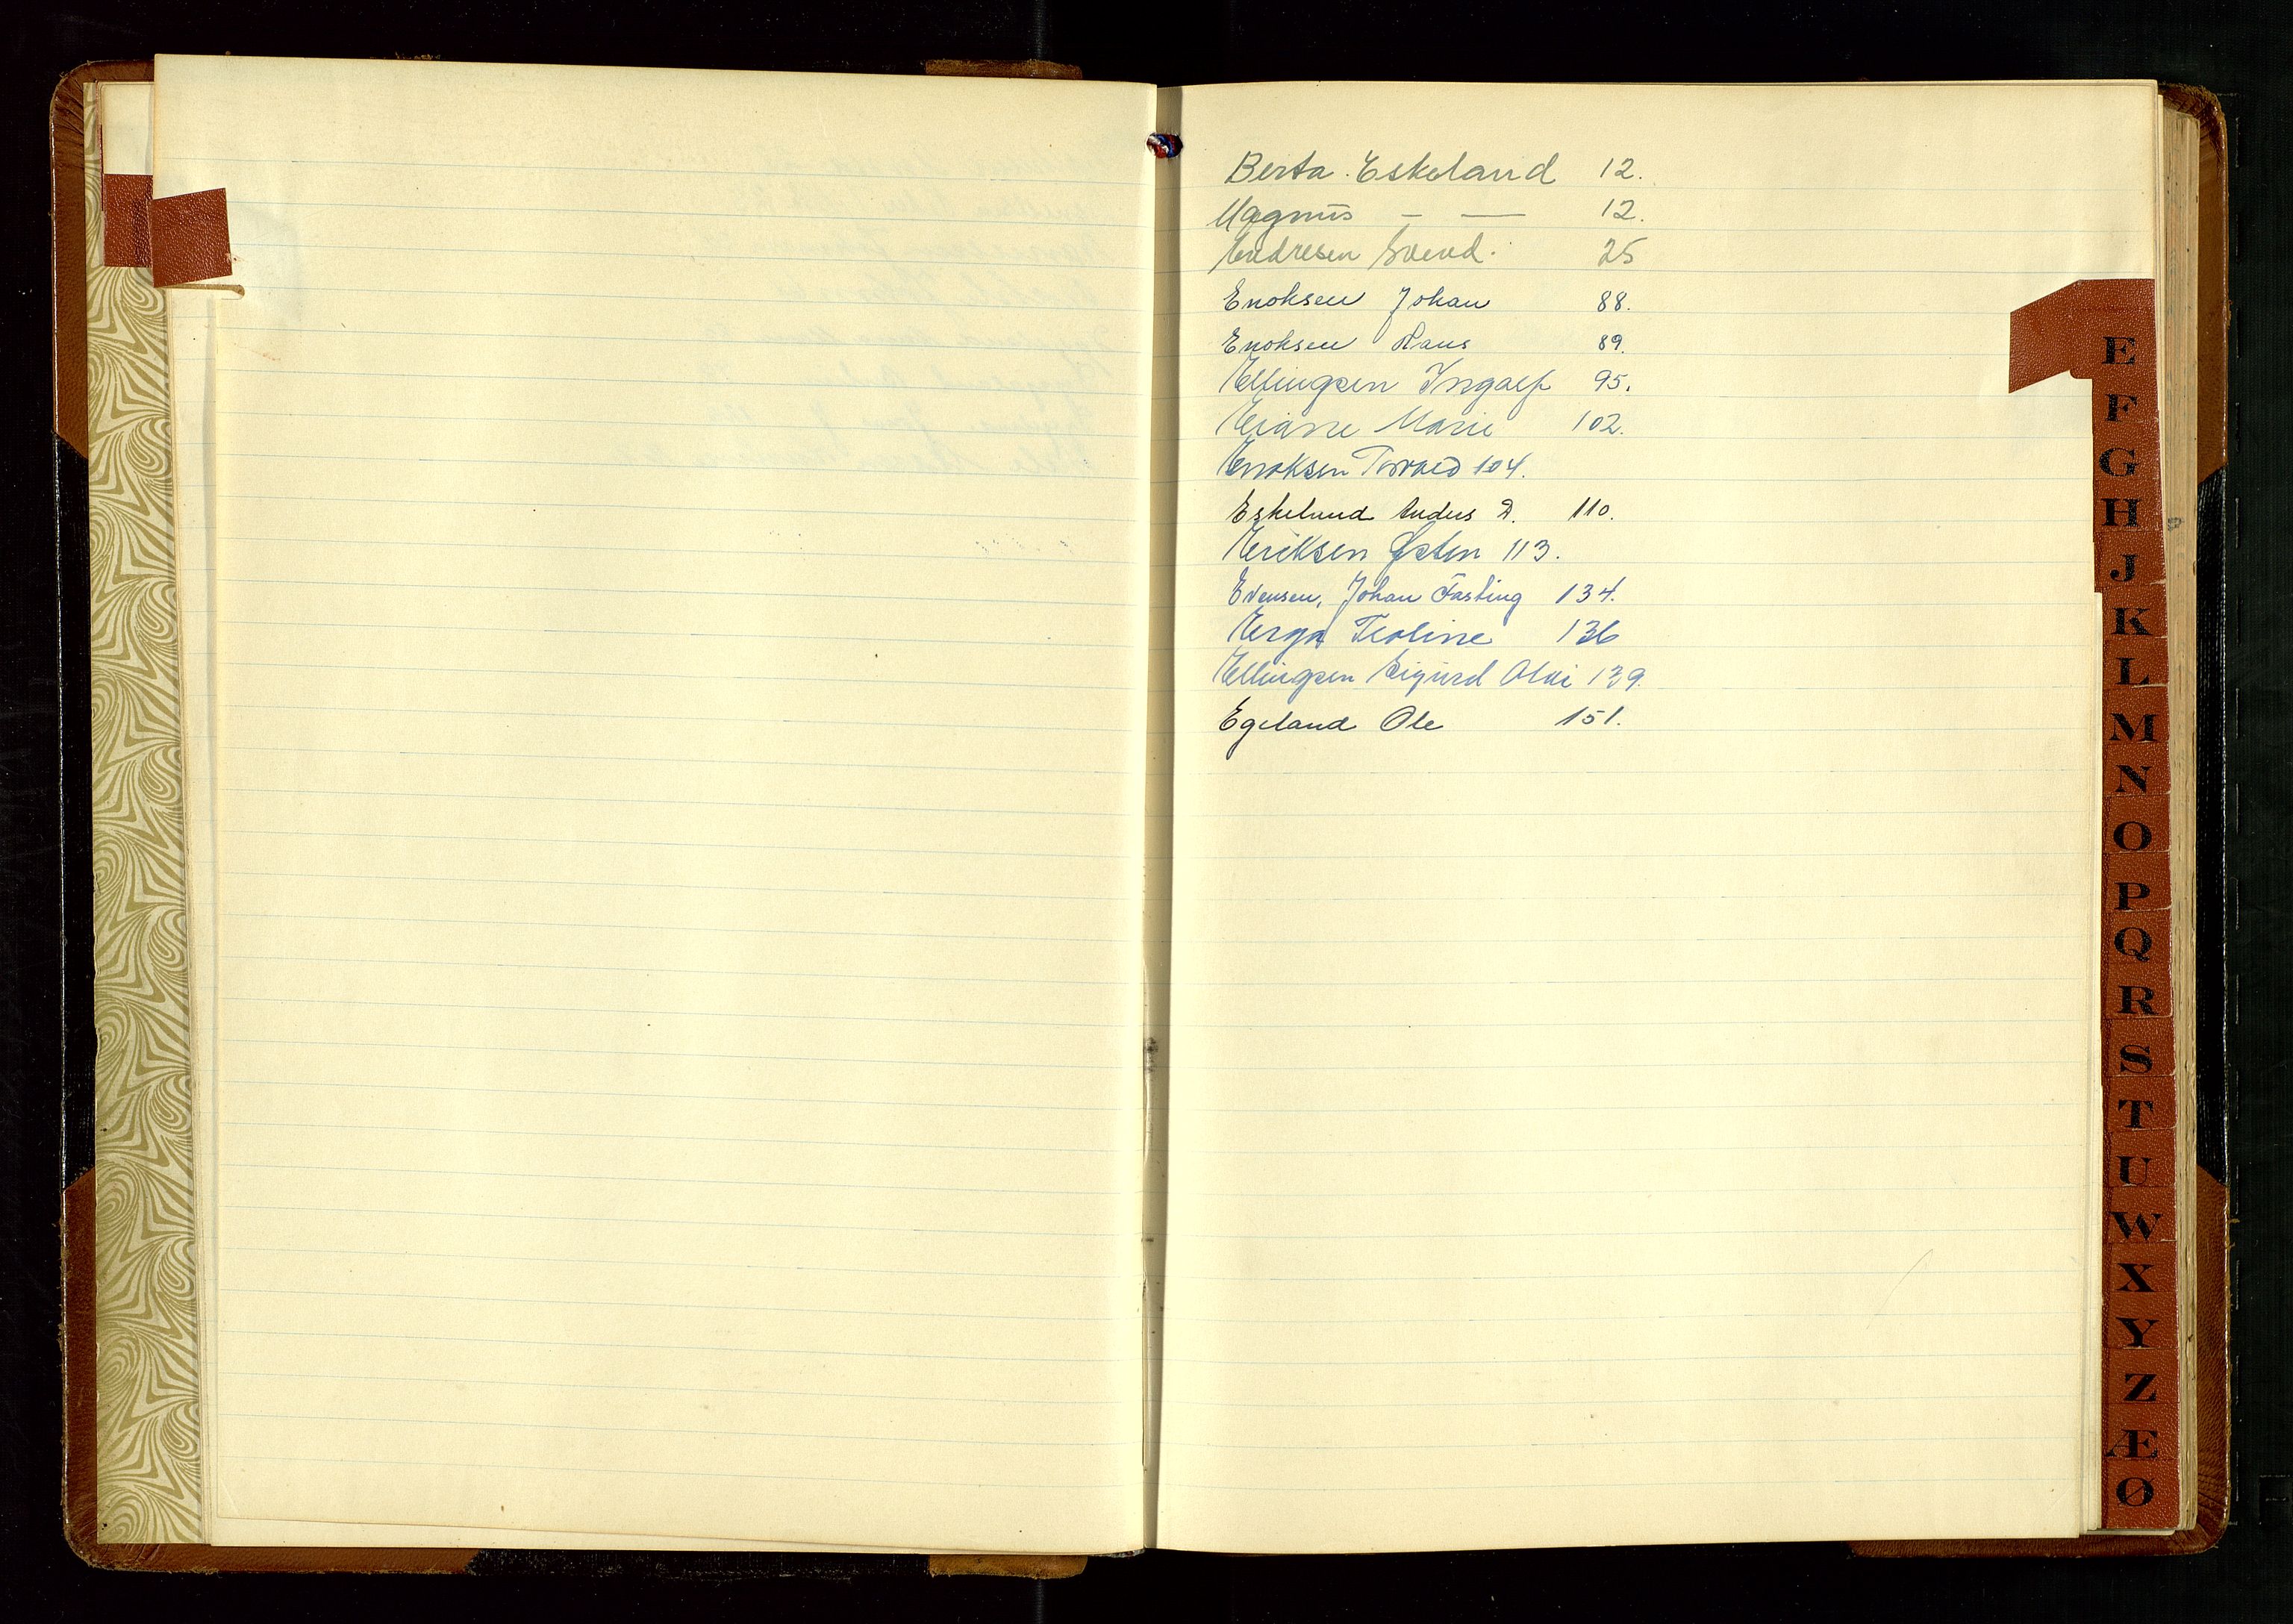 Berta Eskeland 12.
Magnus — — 12.
Endresen Svend. 25
Enoksen Johan 88.
Enoksen Hans 89.
Ellingsen Ingolf 95.
Eiane Marie 102.
Enoksen Torvald 104.
Eskeland Anders D. 110.
Eriksen Østen 113.
Evensen, Johan Fasting 134.
Erga Teoline 136
Ellingsen Sigurd Olai 139.
Egeland Ole 151.
E
F
G
H
J
K
L
M
N
O
P
Q
R
S
T
U
W
X
Y
Z
Æ
Ø